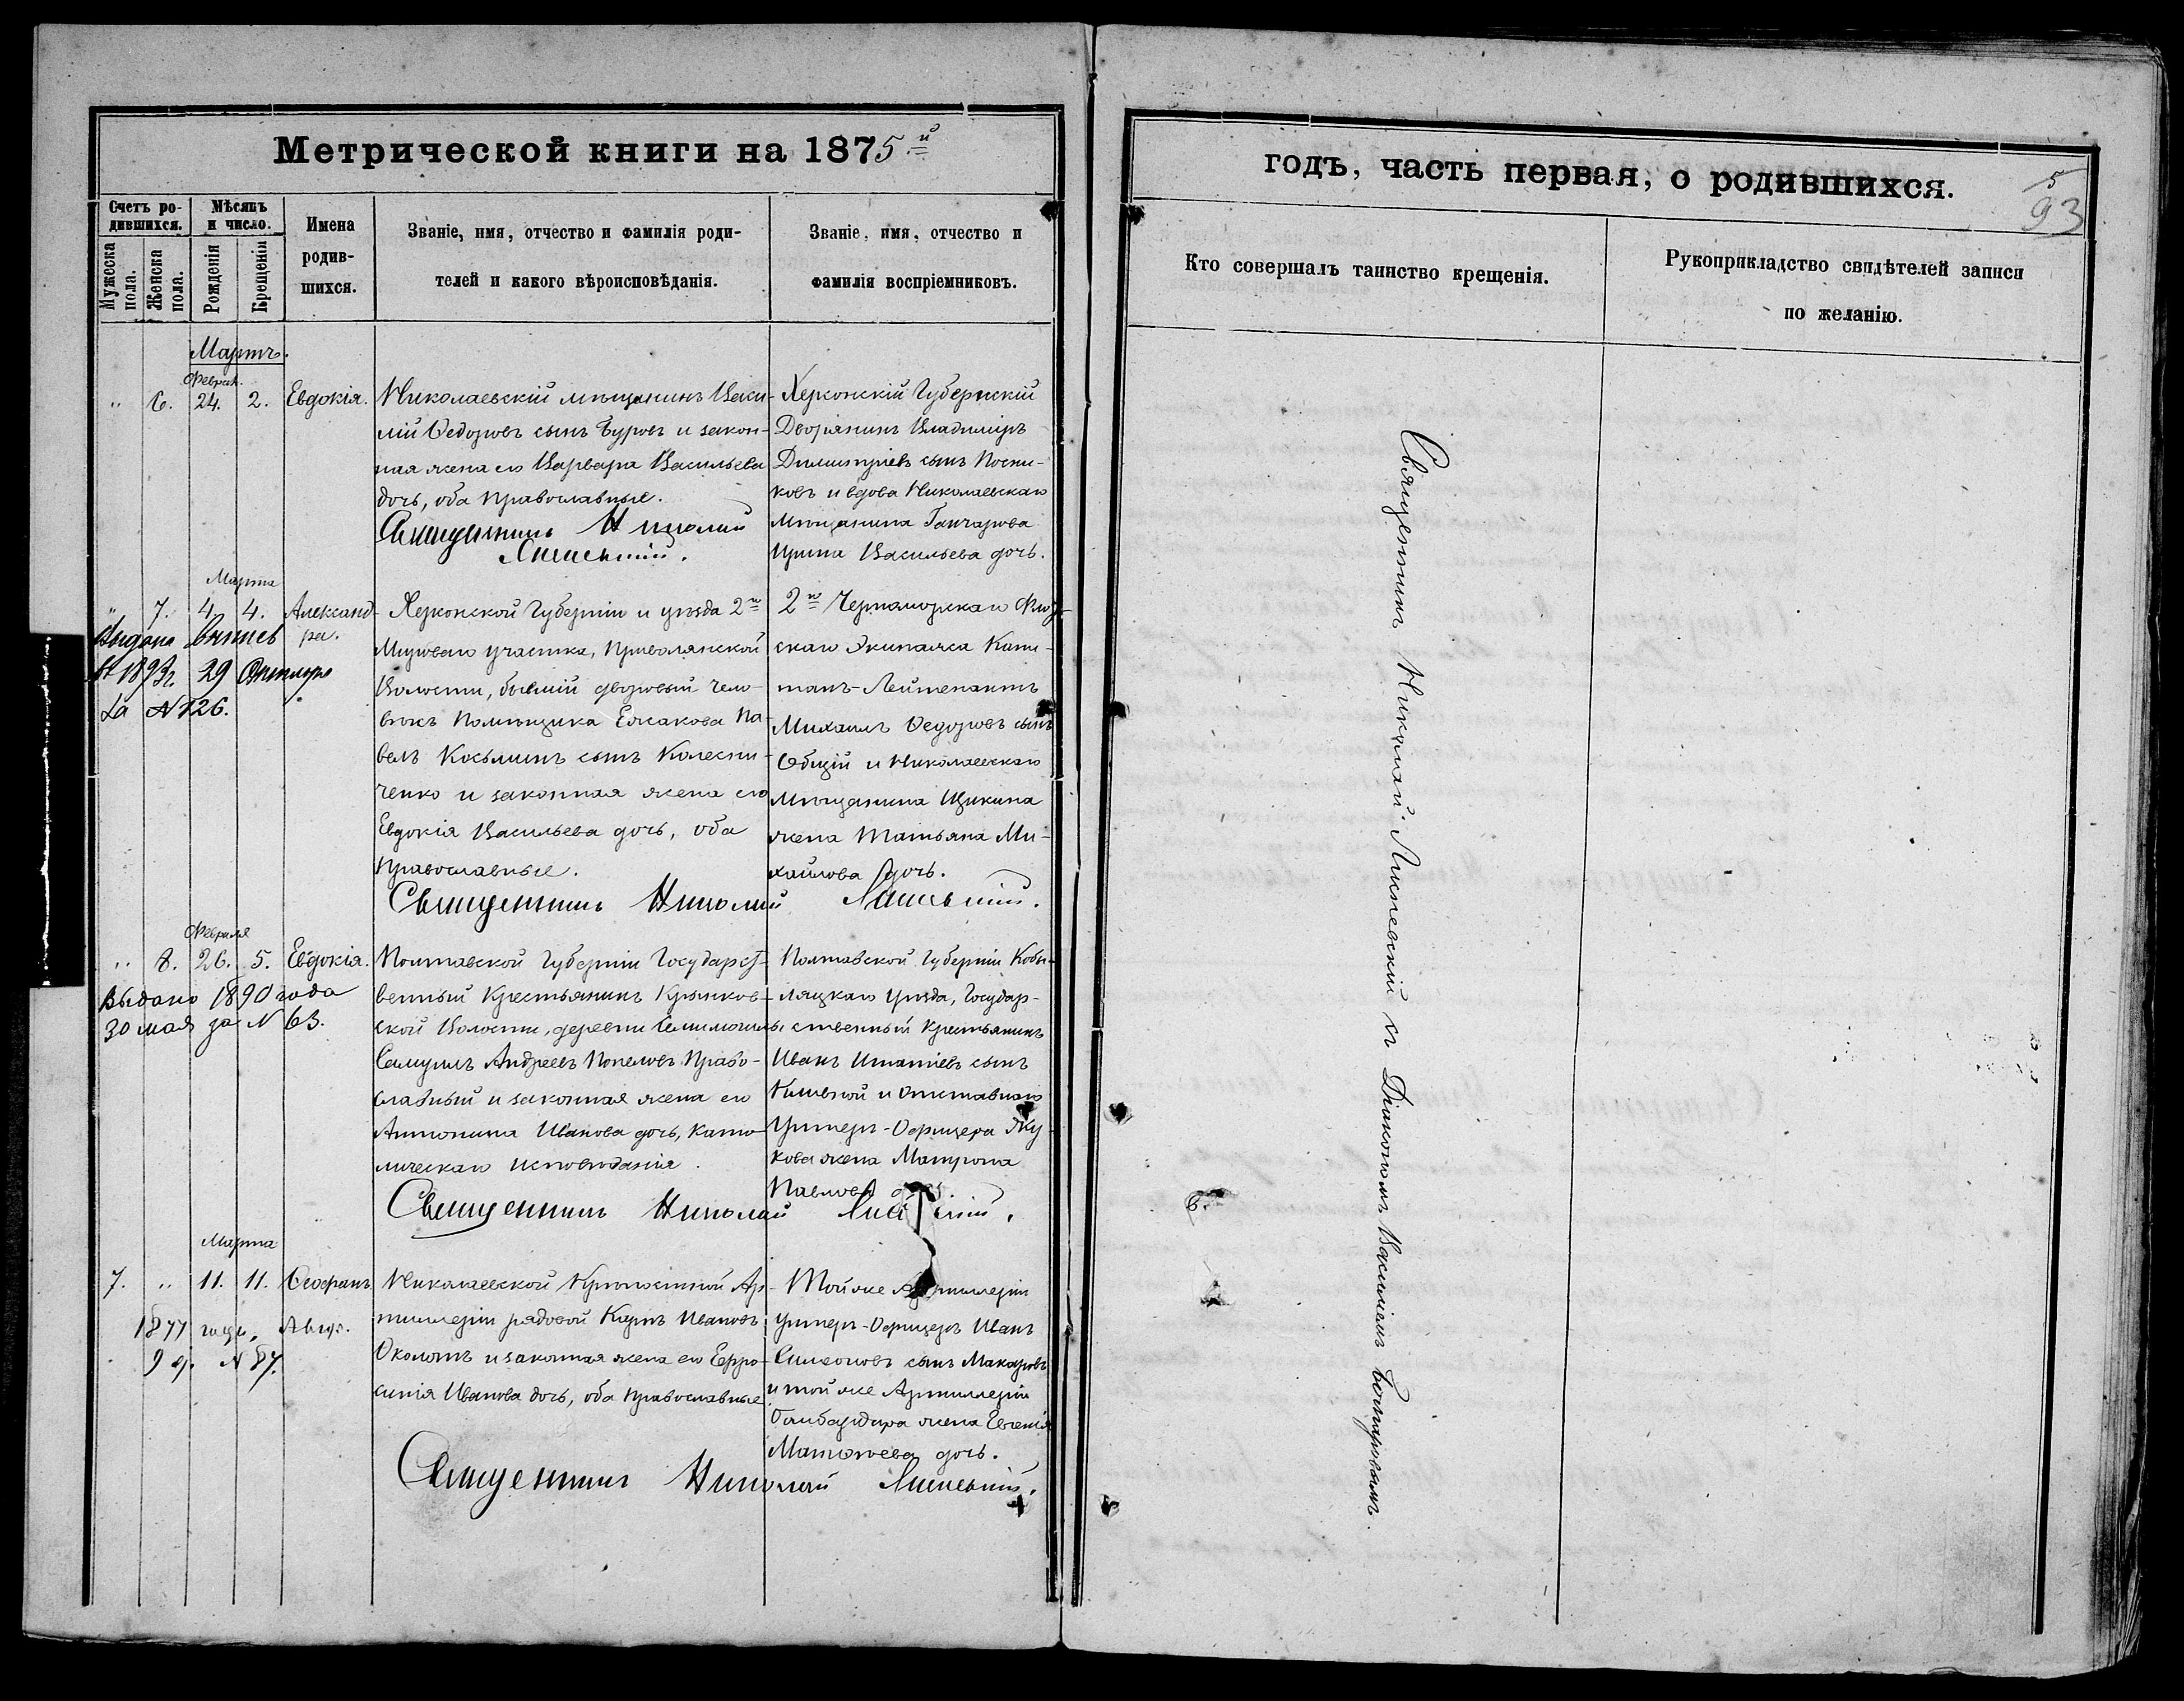 Метрической книги на 1875й
Счетъ ро-
дившихся.
Мужеска
пола.
Женска
пола.
Мѣсяцъ
и число.
Рожденія
Крещенія
Имена
родив-
шихся.
Званіе, имя, отчество и фамилія роди-
телей и какого вѣроисповѣданія.
Званіе, имя, отчество и
фамилія воспріемниковъ.
Мартъ.
Феврал.
" 6. 24. 2. Евдокія.
Николаевскій мѣщанинъ Васи-
лій Ѳедоровъ сынъ Буровъ и закон-
ная жена его Варвара Васильева
дочь, оба православные.
Священникъ Николай
Лисневскій.
Херсонскій Губернскій
Дворянинъ Владиміръ
Димитріевъ сынъ Посни-
ковъ и вдова Николаевскаго
мѣщанина Ганчарова
Ирина Васильева дочь.
Марта
" 7. 4. 4. Александ-
ра.
Выдано
1893г. 29 Октября
за №126.
Херсонской Губерніи и уѣзда 2го
Мироваго участка, Привольянской
Волости, бывшій дворовый чело-
вѣкъ помѣщика Ежакова Па-
велъ Косьминъ сынъ Колесни-
ченко и законная жена его
Евдокія Васильева дочь, оба
православные.
2го Черноморскаго Флот-
скаго Экипажа Капи-
танъ-Лейтенантъ
Михаилъ Ѳедоровъ сынъ
и Николаевскаго
мѣщанина Щукина
жена Татьяна Ми-
хайлова дочь.
Священникъ Николай Лисневскій.
Февраля
" 8. 26. 5. Евдокія.
Выдано 1890 года
30 мая за № 63.
Полтавской Губерніи Государст-
венный крестьянинъ Крынков-
ской Волости, деревни
Самуилъ Андреевъ Попеловъ право-
славный и законная жена его
Антонина Иванова дочь, като-
лическаго исповѣданія.
Полтавской Губерніи Кобы-
ляцкаго уѣзда, Государ-
ственный крестьянинъ
Иванъ Игнатіевъ сынъ
и отставнаго
Унтеръ-Офицера Жу-
кова жена Матрона
Павлова дочь.
Священникъ Николай Лисневскій.
Марта
7. " 11. 11. Ѳеофанъ
1877 года, Авг.
9 д. №87.
Николаевской Крѣпостной Ар-
тиллеріи рядовой Карпъ Ивановъ
Околотъ и законная жена его Евфро-
синія Иванова дочь, оба православные
Той же Артиллеріи
Унтеръ-Офицеръ Иванъ
Симеоновъ сынъ Макаровъ
и той же Артиллеріи
бомбардира жена Евгенія
Матвѣева дочь.
Священникъ Николай Лисневскій.
годъ, часть первая, о родившихся.
5
93
Кто совершалъ таинство крещенія.
Рукоприкладство свидѣтелей записи
по желанію.
Священникъ Николай Лисневскій съ Діакономъ Василіемъ Бочкаровымъ.